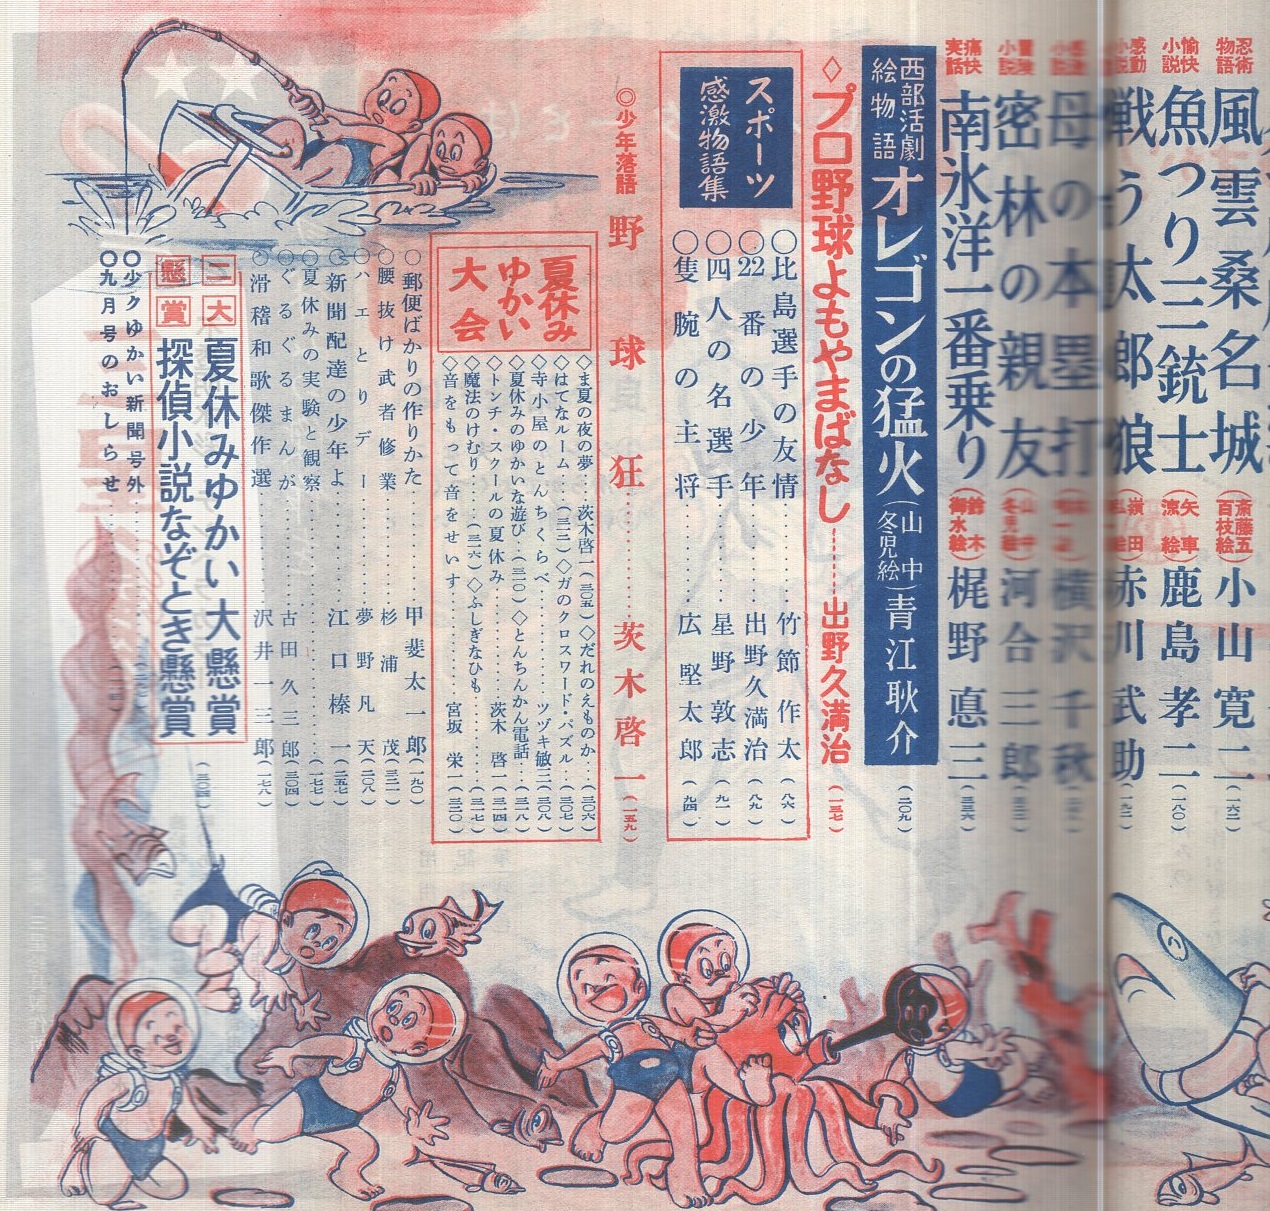 忍術物語 風雲桑名城 (斎藤五百枝絵) 小山寛二 (一六二)
愉快小説 魚つり三銃士 (矢車涼絵) 鹿島孝二 (一八〇)
感動小説 戦う太郎狼 赤川武助 (一九二)
母の本塁打 横沢千秋
密林の親友 河合三郎
痛快実話 南氷洋一番乗り (鈴木御水絵) 梶野悳三 (三三六)
西部活劇絵物語 オレゴンの猛火 (山中冬児絵) 青江耿介 (二〇九)
◇プロ野球よもやまばなし……出野久満治 (一三七)
スポーツ感激物語集
○比島選手の友情……竹節作太 (八六)
○22番の少年……出野久満治 (八九)
○四人の名選手……星野敦志 (九一)
○隻腕の主将……広堅太郎 (九四)
◎少年落語 野球狂……茨木啓一 (一五九)
夏休みゆかい大会
◇ま夏の夜の夢……茨木啓一(三〇五)◇だれのえものか…(三〇六)
◇はてなルーム……(三三)◇ガのクロスワード・パズル…(三〇七)
◇寺小屋のとんちくらべ……ツヅキ敏三(三〇八)
◇夏休みのゆかいな遊び…(三一〇)◇とんちんかん電話…(三一八)
◇トンチ・スクールの夏休み……茨木啓一(三一四)
◇魔法のけむり……(三一六)◇ふしぎなひも……(三一七)
◇音をもって音をせいす……宮坂栄一(三二〇)
○郵便ばかりの作りかた……甲斐太一郎(一九〇)
○腰抜け武者修業……杉浦茂(三二一)
○ハエとりデー……夢野凡天(二〇八)
○新聞配達の少年よ……江口榛一(二五七)
○夏休みの実験と観察……(一七七)
○ぐるぐるまんが……古田久三郎(三〇四)
○滑稽和歌傑作選……沢井一三郎(一七六)
二大懸賞
夏休みゆかい大懸賞
探偵小説なぞとき懸賞
(三〇四)
○少クゆかい新聞号外……
○九月号のおしらせ……